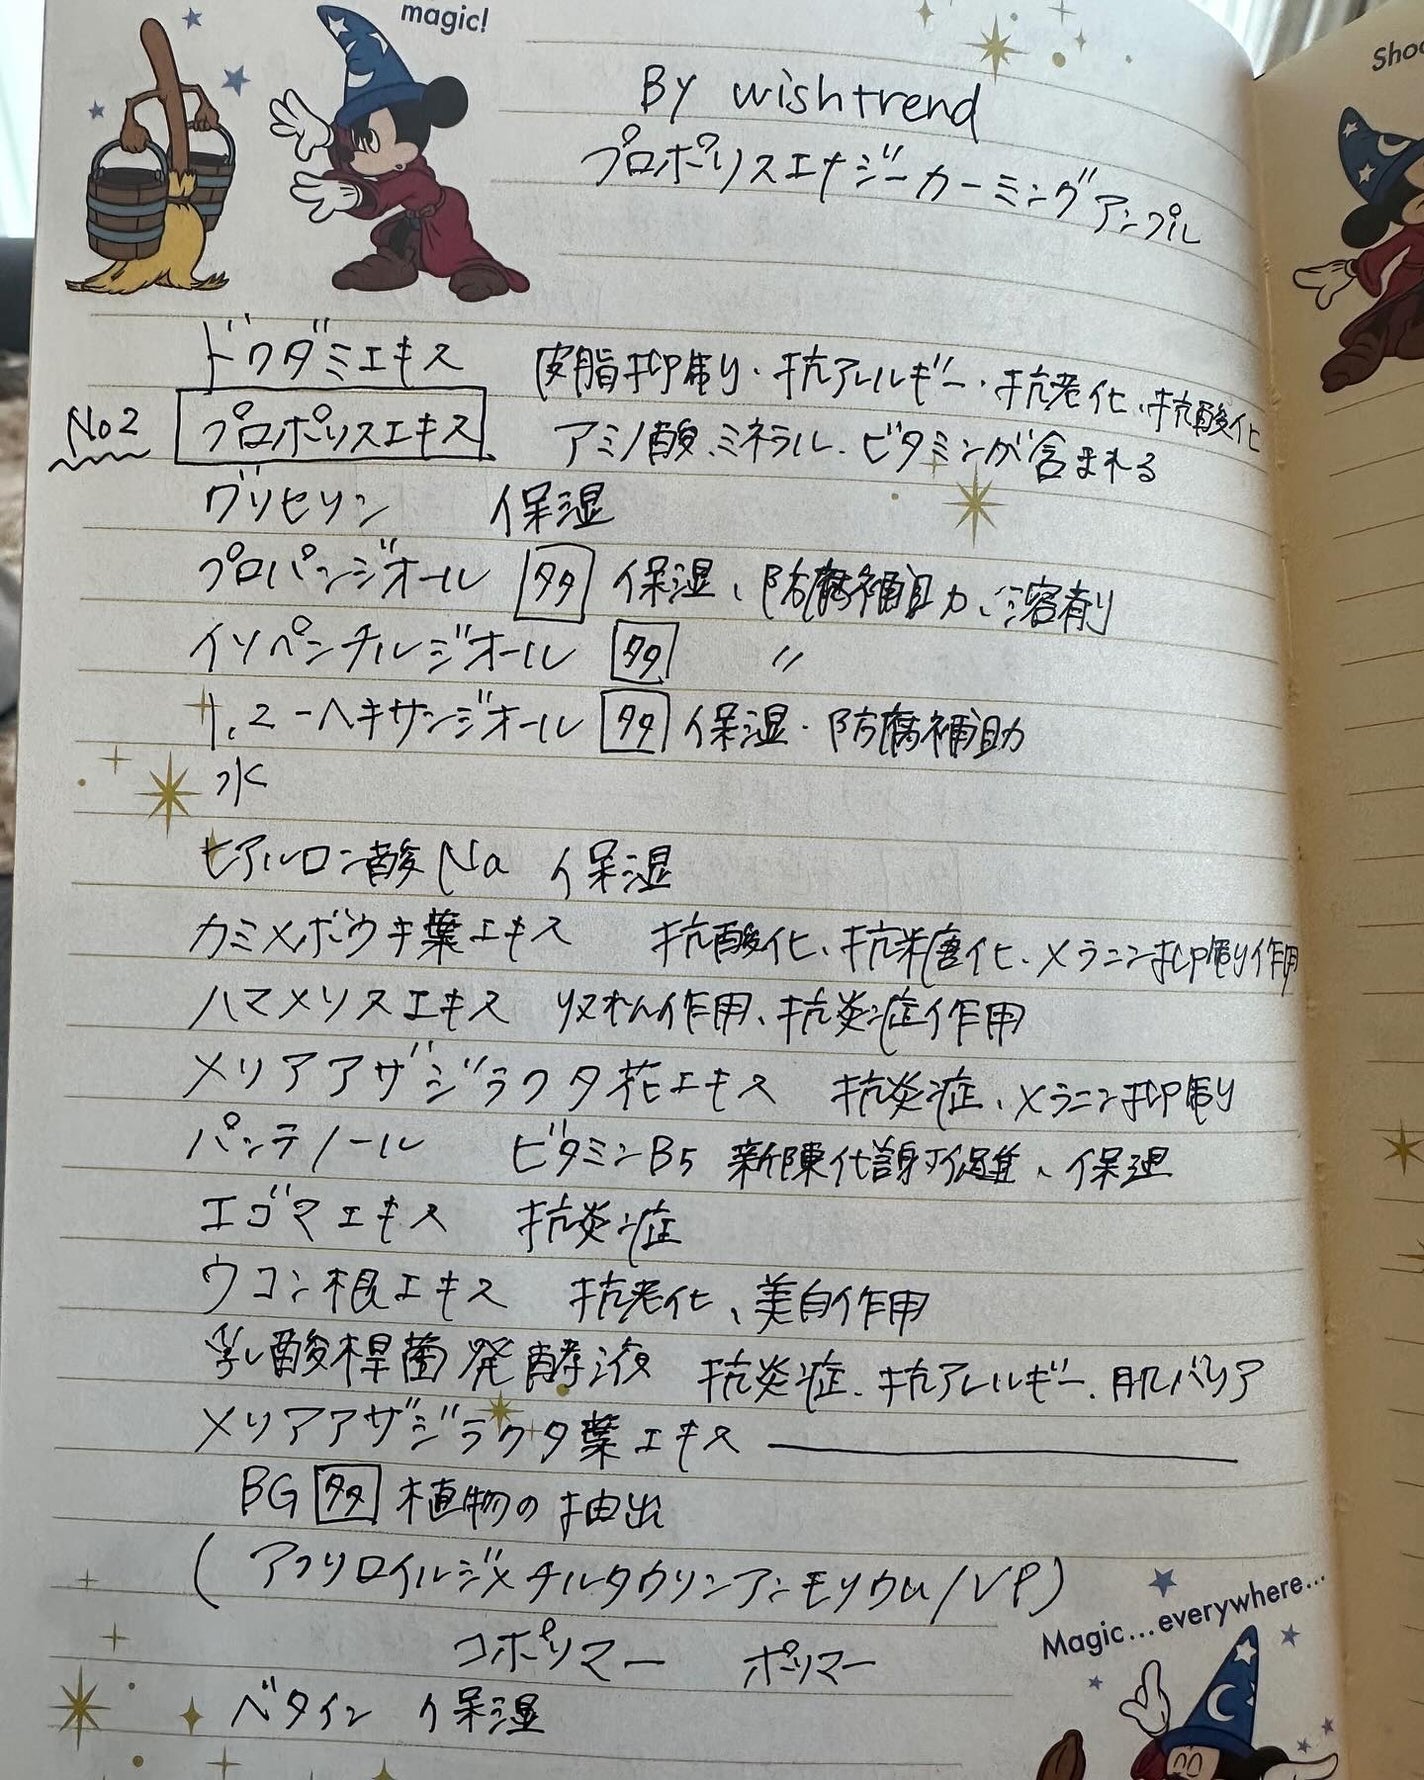 magic!
Shoo
By wishtrend
プロポリスエナジーカーミングアンプル
ドクダミエキス 皮脂抑制・抗アレルギー・抗老化、抗酸化
No2 プロポリスエキス アミノ酸、ミネラル、ビタミンが含まれる
グリセリン 保湿
プロパンジオール 多 保湿、防腐補助力、溶剤
イソペンチルジオール 多 〃
1,2-ヘキサンジオール 多 保湿・防腐補助
水
ヒアルロン酸Na 保湿
カミメボウキ葉エキス 抗酸化、抗糖化、メラニン抑制作用
ハマメリスエキス 収れん作用、抗炎症作用
メリアアザジラクタ花エキス 抗炎症、メラニン抑制
パンテノール ビタミンB5 新陳代謝促進、保湿
エゴマエキス 抗炎症
ウコン根エキス 抗老化、美白作用
乳酸桿菌発酵液 抗炎症、抗アレルギー、肌バリア
メリアアザジラクタ葉エキス
BG 多 植物の抽出
(アクリロイルジメチルタウリンアンモリウム/VP)
コポリマー ポリマー
ベタイン 保湿
Magic...everywhere...